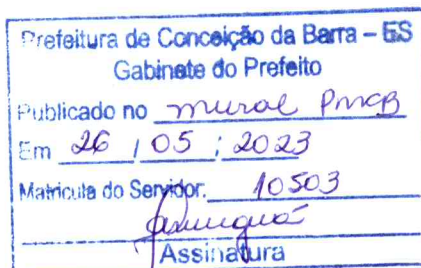 Prefeitura de Conceição da Barra – ES
Gabinete do Prefeito
Publicado no mural PMCB
Em 26 / 05 / 2023
Matricula do Servidor: 10503
Assinatura